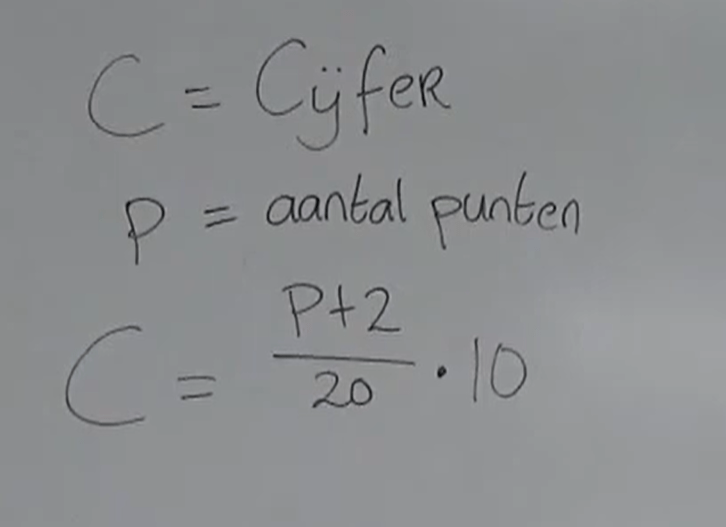 C = Cijfer
P = aantal punten
C = P+2/20 · 10